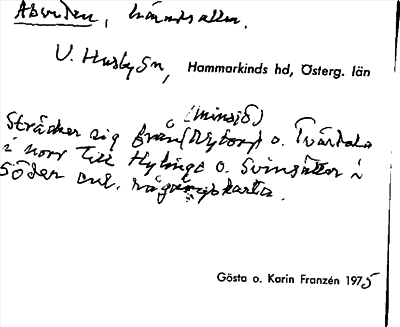 Aborden, häradsallm.
V. Husby sn,
Hammarkinds hd, Österg. län
(Minsjö)
Sträcker sig från (Nytorp) o. Tvärdala
i norr till Hylinge o. Svinsätter i
Söder enl. vägkarta.
Gösta o. Karin Franzén 1975